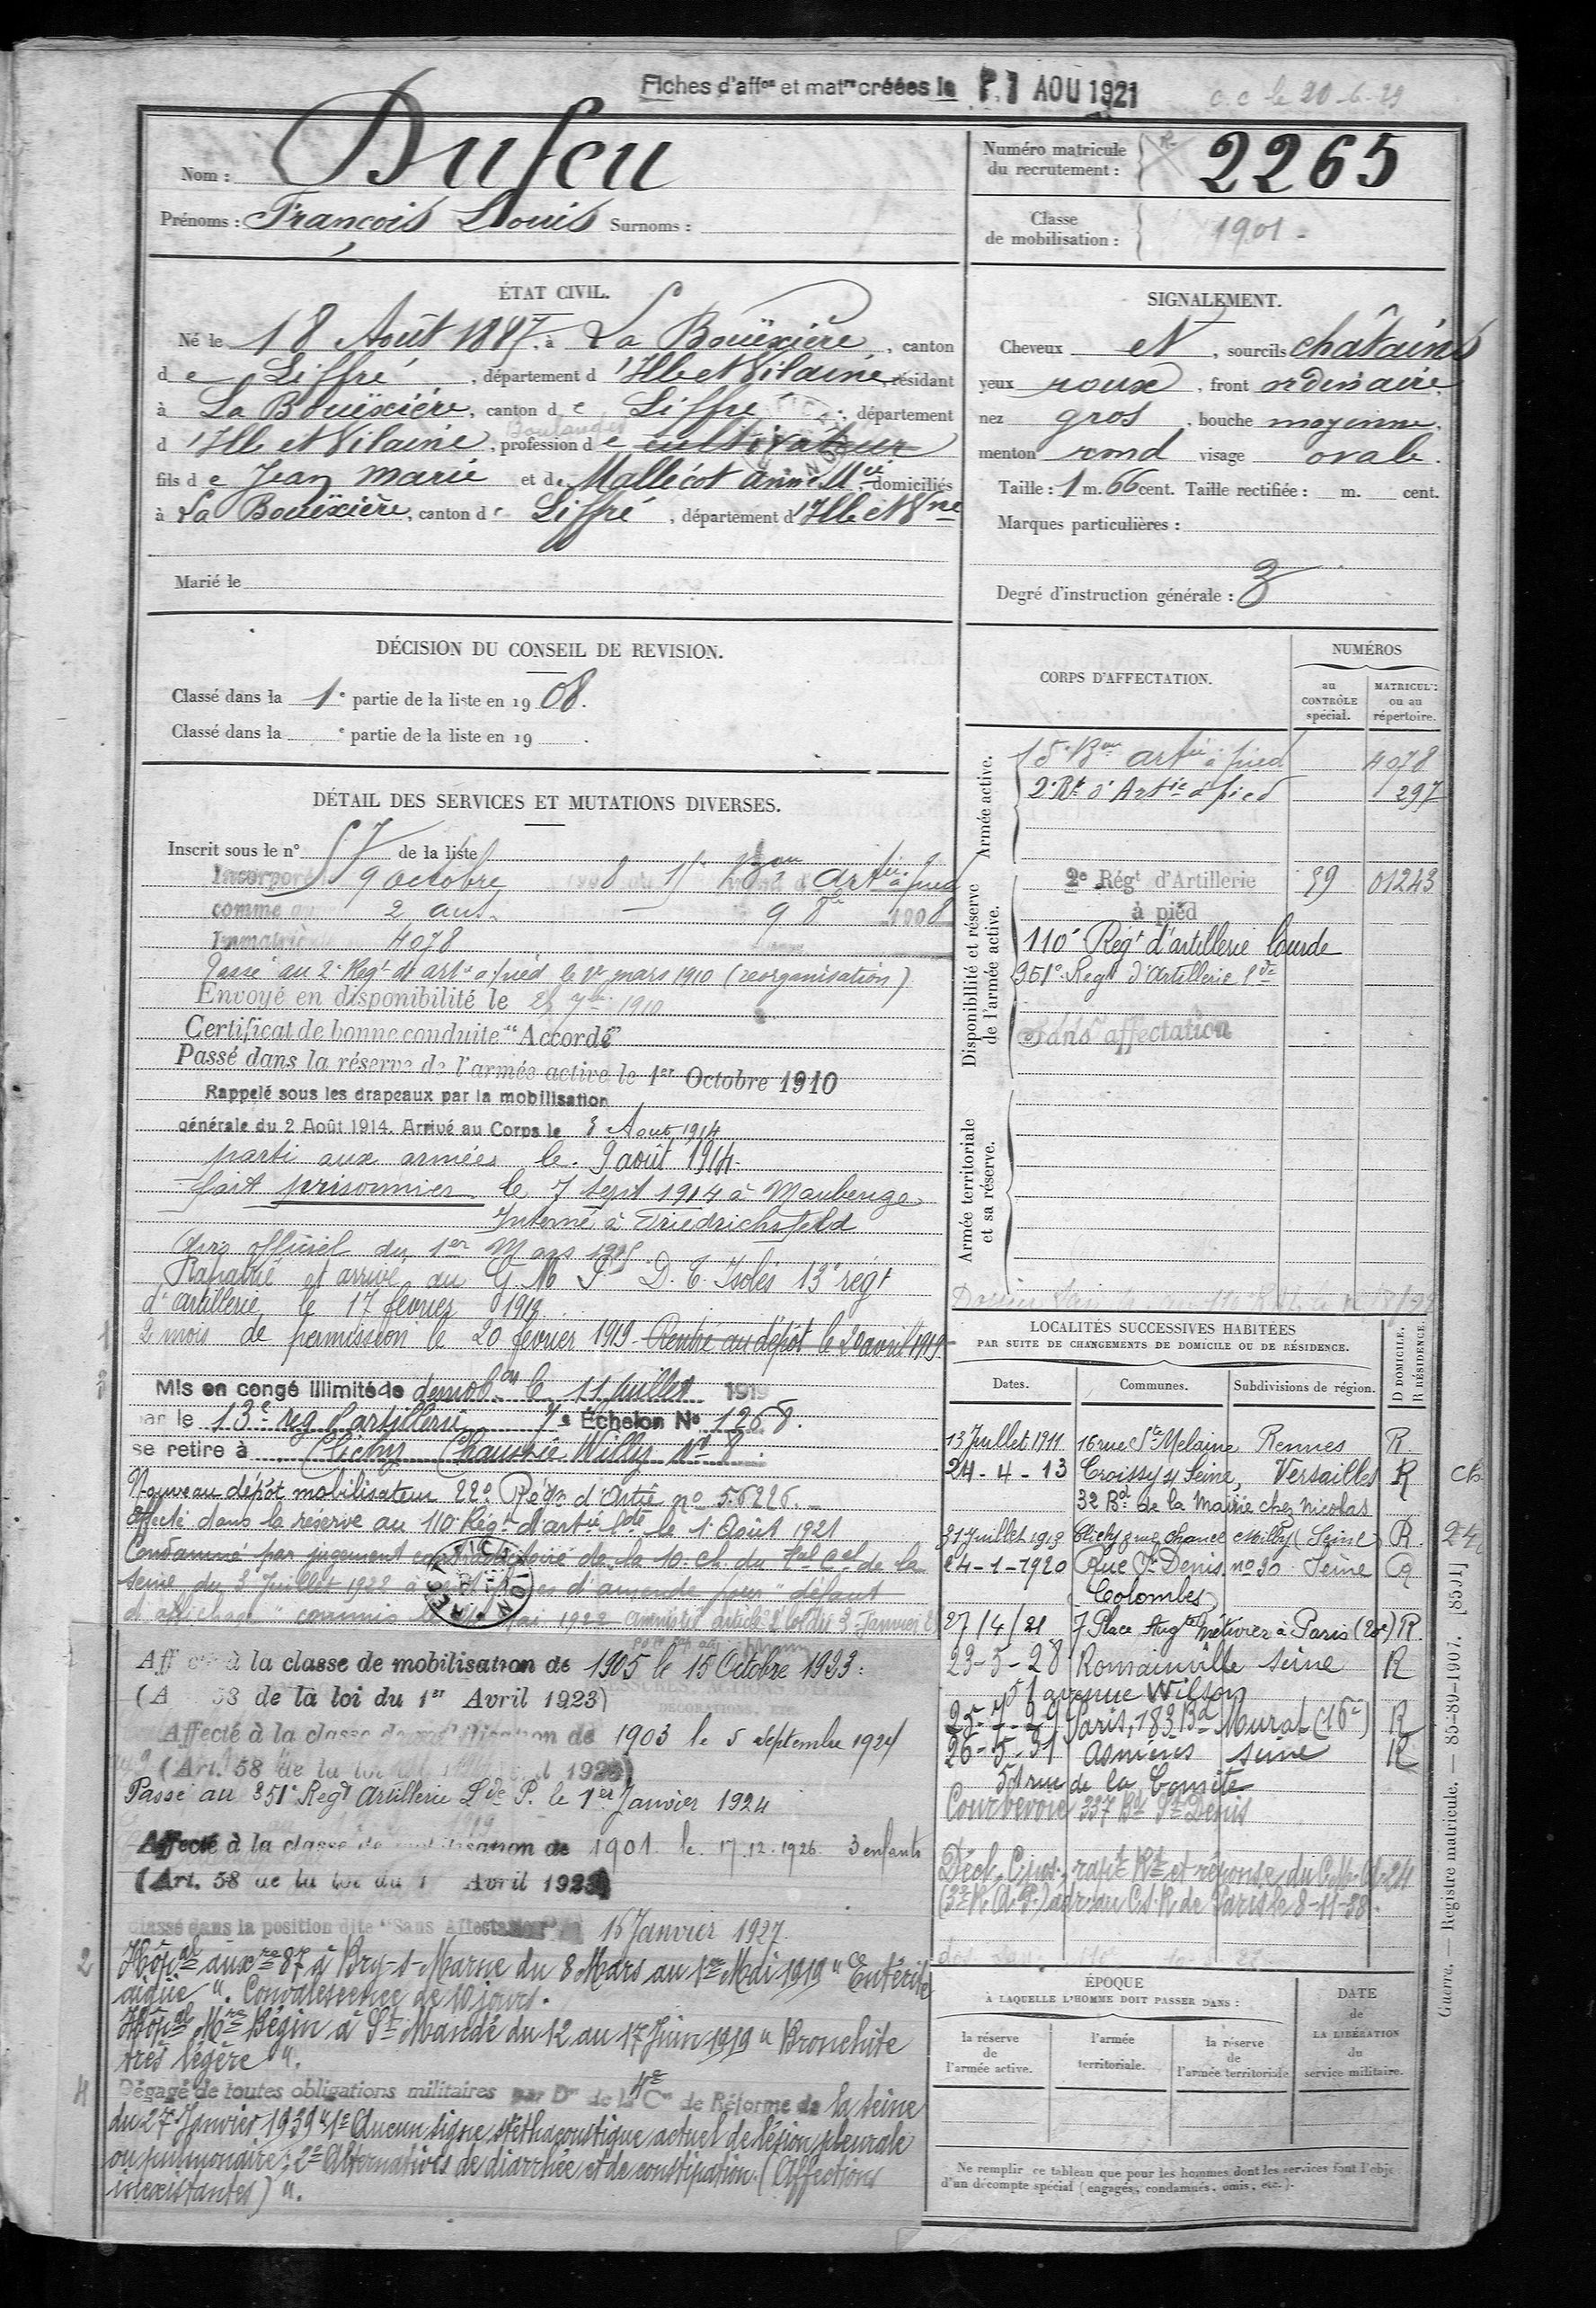 Fiches d'affon et matre créées le 1 AOU 1921
c.c le 20-6-29
Nom : Dufeu
Prénoms : François Louis Surnoms :
Numéro matricule
du recrutement : 2265
Classe
de mobilisation : 1901
ÉTAT CIVIL.
Né le 18 Août 1887, à La Bouëxière, canton
de Liffré, département d'Ille et Vilaine, résidant
à La Bouëxière, canton de Liffré, département
Boulanger
d'Ille et Vilaine, profession de cultivateur
fils de Jean Marie et de Mallécot Anne Mie domiciliés
à La Bouëxière, canton de Liffré, département d'Ille et Vne
Marié le
SIGNALEMENT.
Cheveux et, sourcils châtains
yeux roux, front ordinaire,
nez gros, bouche moyenne,
menton rond visage ovale.
Taille : 1 m. 66 cent. Taille rectifiée : m. cent.
Marques particulières :
Degré d'instruction générale : 3
DÉCISION DU CONSEIL DE REVISION.
Classé dans la 1e partie de la liste en 1908.
Classé dans la e partie de la liste en 19 .
DÉTAIL DES SERVICES ET MUTATIONS DIVERSES.
Inscrit sous le n° 57 de la liste
Incorporé 9 octobre 1908 au 15e Bon d'Artie à pied
comme 2 ans 9 8bre 1908
Immatriculé 4078
Passé au 2e Régt de artie à pied le 1er mars 1910 (réorganisation)
Envoyé en disponibilité le 25 7bre 1910
Certificat de bonne conduite "Accordé"
Passé dans la réserve de l'armée active le 1er Octobre 1910
Rappelé sous les drapeaux par la mobilisation
générale du 2 Août 1914. Arrivé au Corps le 3 Août 1914
parti aux armées le 9 août 1914.
fait prisonnier le 7 Sept 1914 à Maubeuge
Interné à Friedrichsfeld
officiel du 1er Mars 1915
Rapatrié et arrivé au G.M.P. D.T. Isolés 13e régt
d'artillerie le 17 février 1919
1 2 mois de permission le 20 février 1919 Rentre au dépôt le 20 avril 1919
3 Mis en congé illimité de démobon le 11 Juillet 1919
par le 13e rég d'artillerie 7e Échelon No 1268.
se retire à Clichy Chaussée Willy No 8.
Nouveau dépôt mobilisateur 22e Régt d'Artie no 56226.
affecté dans la réserve au 110e Régt d'artie lde le 1 Août 1921
Condamné par jugement contradictoire de la 10e ch. du Tal Cel de la
Seine du 3 Juillet 1922 à d'amende pour "défaut
d'affichage" commis le mai 1922 amnistié article 2 loi du 3 Janvier 25
Affecté à la classe de mobilisation de 1905 le 15 Octobre 1923.
(A 58 de la loi du 1er Avril 1923)
Affecté à la classe de mobilisation de 1903 le 5 Septembre 1924
(Art. 58 de la loi 1923)
Passé au 351e Regt Artillerie Lde P. le 1er Janvier 1924
Affecté à la classe de mobilisation de 1901 le 17.12.1926. 3 enfants
(Art. 58 de la loi du 1 Avril 1923)
Classé dans la position dite "Sans Affectation" 15 Janvier 1927.
2 Hôpal auxre 87 à Bry-s-Marne du 8 Mars au 1er Mai 1919 "Entérite
aigüe". Convalescence de 10 jours.
Hôpal Mre Bégin à St Mandé du 12 au 17 Juin 1919 "Bronchite
très légère".
4 Dégagé de toutes obligations militaires par Don de la 4e Con de Réforme de la Seine
du 27 Janvier 1939 "1° Aucun signe stéthacoustique actuel de lésion pleurale
ou pulmonaire; 2° Alternatives de diarrhée et de constipation. (Affections
inexistantes)".
CORPS D'AFFECTATION.
NUMÉROS
au
CONTRÔLE
spécial.
MATRICULE
ou au
répertoire.
Armée active.
15e Bon artie à pied 4078
2e Rt d'Artie à pied 297
Disponibilité et réserve
de l'armée active.
2e Régt d'Artillerie 89 01243
à pied
110e Régt d'artillerie lourde
351e Regt d'Artillerie lde
Sans affectation
Armée territoriale
et sa réserve.
LOCALITÉS SUCCESSIVES HABITÉES
PAR SUITE DE CHANGEMENTS DE DOMICILE OU DE RÉSIDENCE.
D DOMICILE.
R RÉSIDENCE.
Dates. Communes. Subdivisions de région.
13 Juillet 1911 16 rue Ste Melaine Rennes R
24-4-13 Croissy s/ Seine, Versailles R
32 Bd de la Mairie chez Nicolas
31 Juillet 1919 Clichy 8 rue (Seine) R
24-1-1920 Rue St Denis no 90 Seine R
Colombes
27/4/21 7 Place Augte Métivier à Paris (20e) R
23-5-28 Romainville Seine R
51 avenue Wilson
25-7-29 Paris, 183 Bd Murat (16e) R
26-5-31 Asnières Seine R
51 rue de la Comète
Courbevoie 337 Bd St Denis
ÉPOQUE
À LAQUELLE L'HOMME DOIT PASSER DANS :
la réserve
de
l'armée active.
l'armée
territoriale.
la réserve
de
l'armée territoriale
DATE
de
LA LIBÉRATION
du
service militaire.
Ne remplir ce tableau que pour les hommes dont les services font l'obje
d'un décompte spécial (engagés, condamnés, omis, etc.).
Guerre. — Registre matricule. — 85-89-1907. [85 J1]